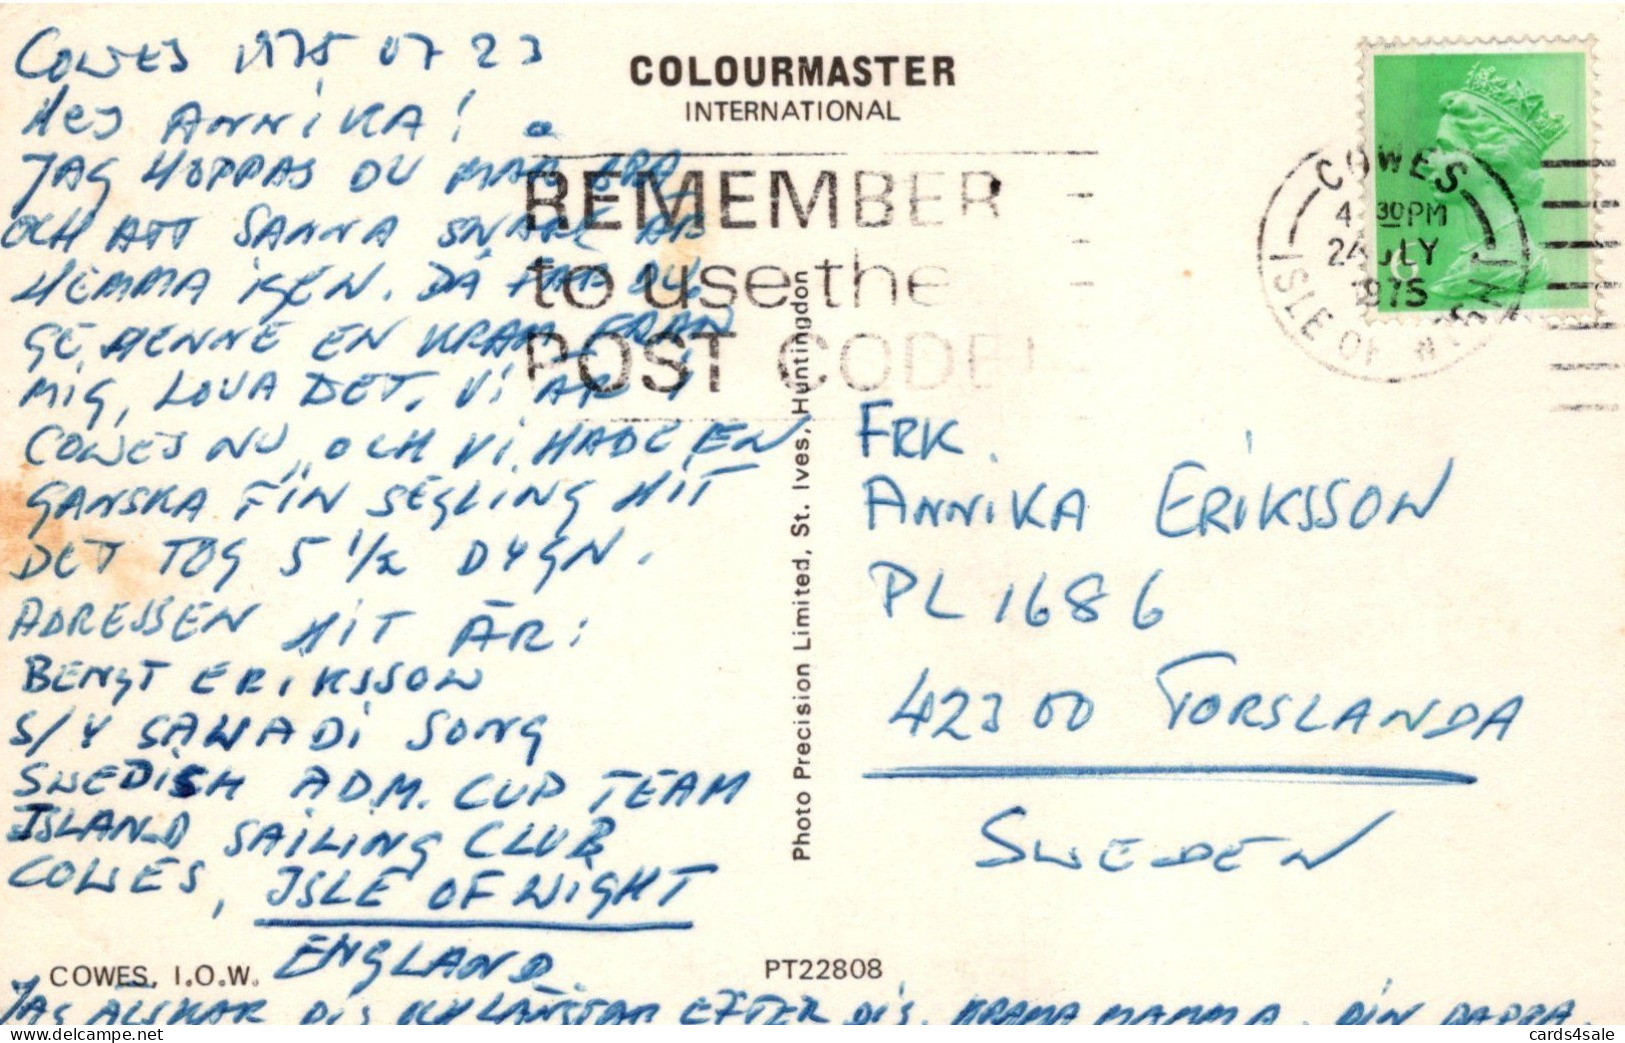 COWES 1975 07 23
HEJ ANNIKA!
JAG HOPPAS DU MÅR BRA,
OCH ATT SANNA SNART ÄR
HEMMA IGEN. DÅ FÅR DU
GE HENNE EN KRAM FRÅN
MIG, LOVA DET. VI ÄR I
COWES NU, OCH VI HADE EN
GANSKA FIN SEGLING HIT
DET TOG 5 1/2 DYGN.
ADRESSEN HIT ÄR:
BENGT ERIKSSON
S/Y SAWADI SONG
SWEDISH ADM. CUP TEAM
ISLAND SAILING CLUB
COWES, ISLE OF WIGHT
ENGLAND.
JAG ÄLSKAR DIG OCH LÄNGTAR EFTER DIG. KRAMA MAMMA. DIN PAPPA.
COWES, I.O.W.
PT22808
COLOURMASTER
INTERNATIONAL
REMEMBER
to use the
POST CODE!
Photo Precision Limited, St. Ives, Huntingdon
COWES
4 30PM
24 JLY
1975
ISLE OF WIGHT
FRK.
ANNIKA ERIKSSON
PL 1686
423 00 TORSLANDA
SWEDEN
cards4sale